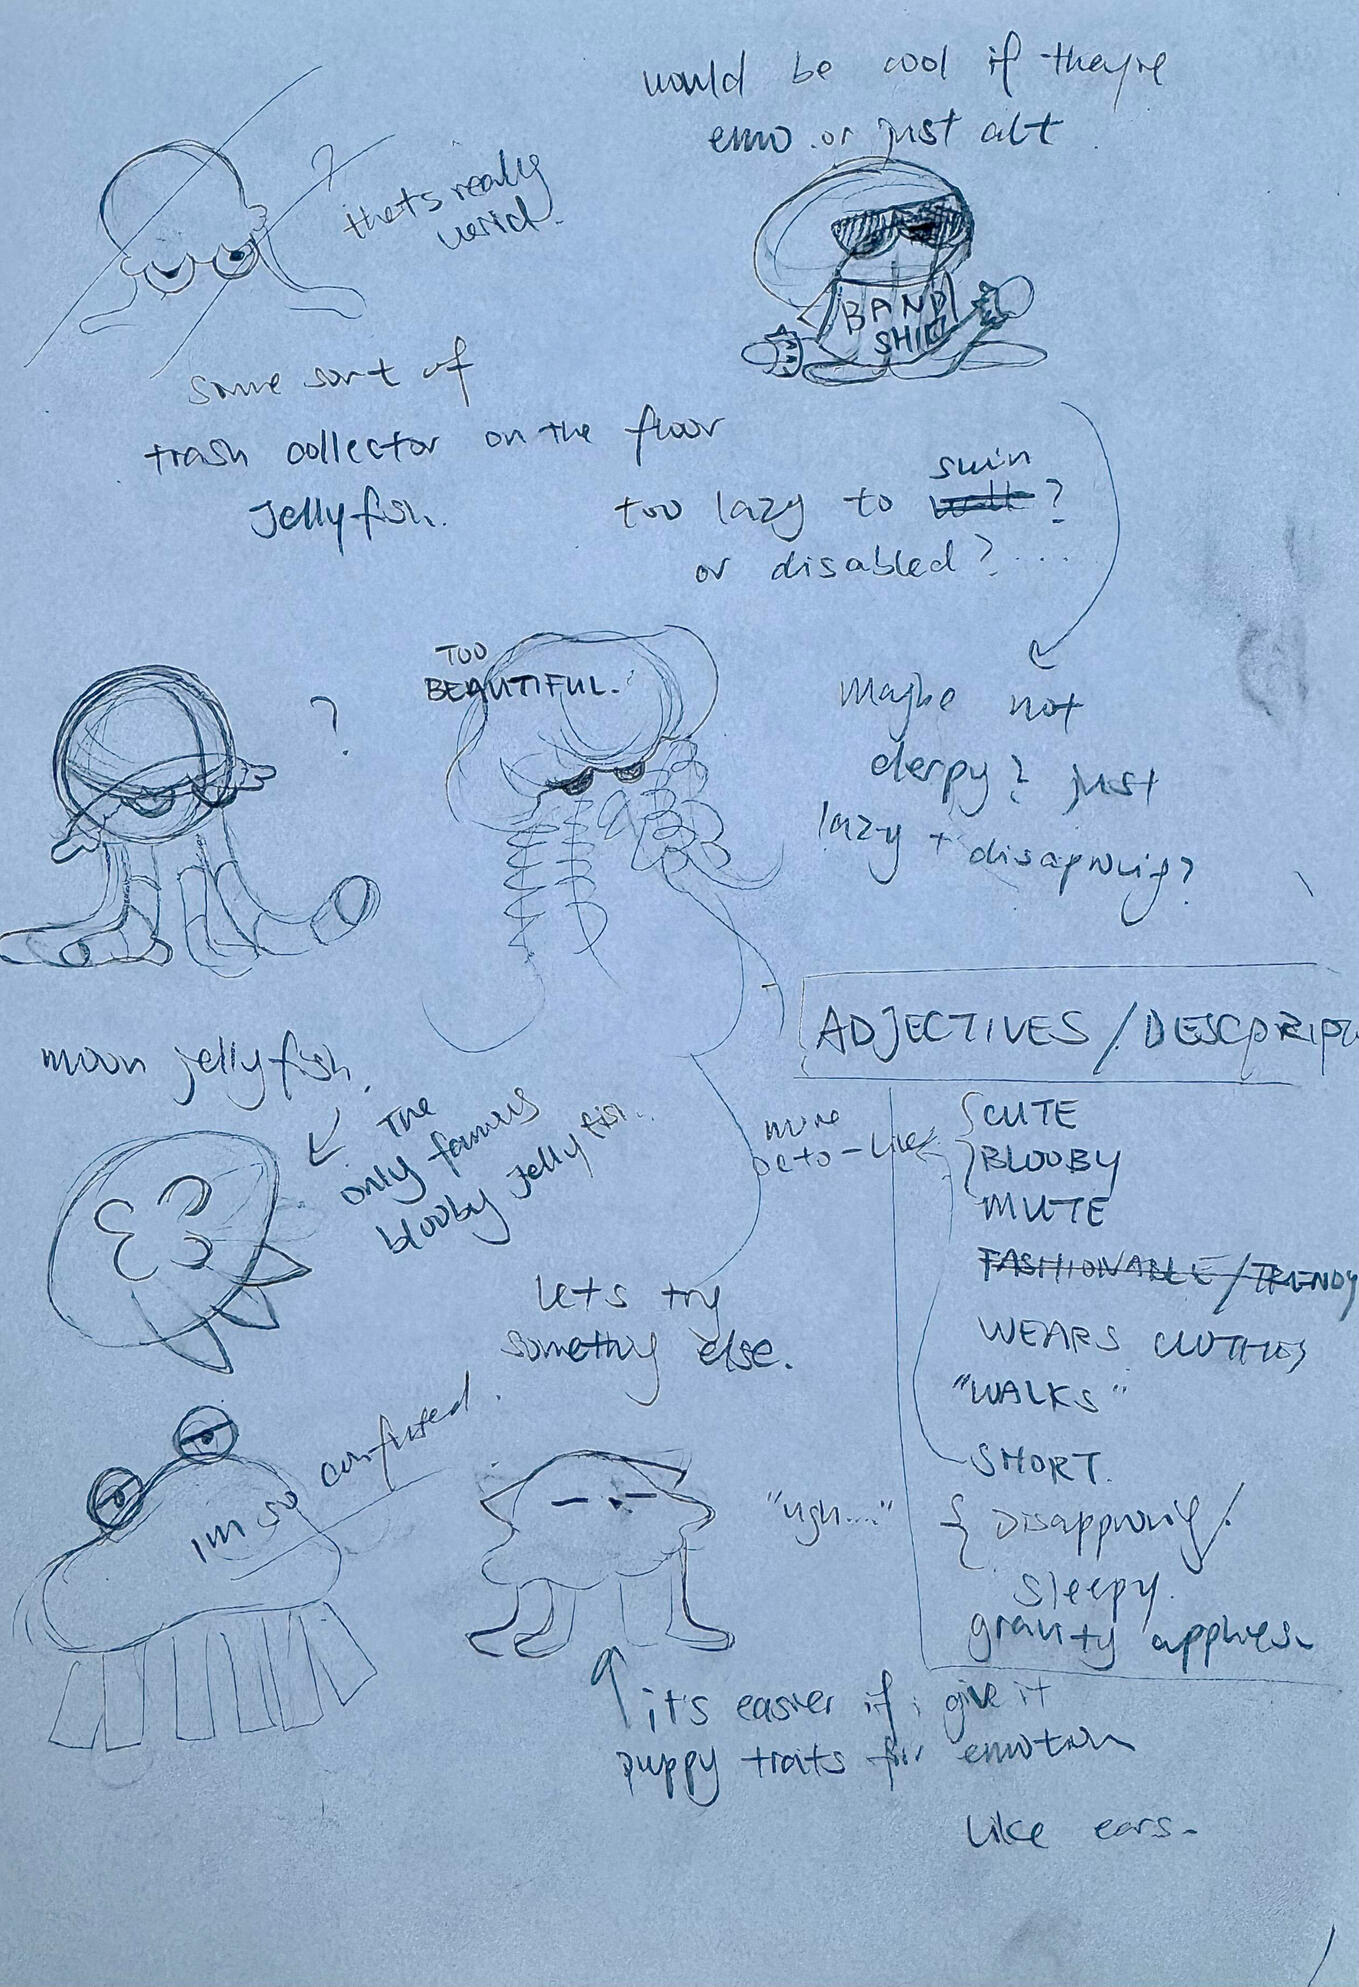 would be cool if they're
emo or just alt
?
thats really
weird.
BAND
SHIRT
some sort of
trash collector on the floor
jellyfish.
too lazy to swim ?
or disabled? ...
TOO
BEAUTIFUL.
?
Maybe not
derpy? just
lazy + disaproving?
moon jellyfish.
The
only famous
blooby jellyfish..
ADJECTIVES / DESCPRIPT
more
octo-like
CUTE
BLOOBY
MUTE
FASHIONABLE / TRENDY
WEARS CLOTHES
"WALKS"
SHORT.
Disapproving /
sleepy.
gravity applies.
Lets try
something else.
im so confused.
"ugh...."
it's easier if i give it
puppy traits for emotion
like ears.